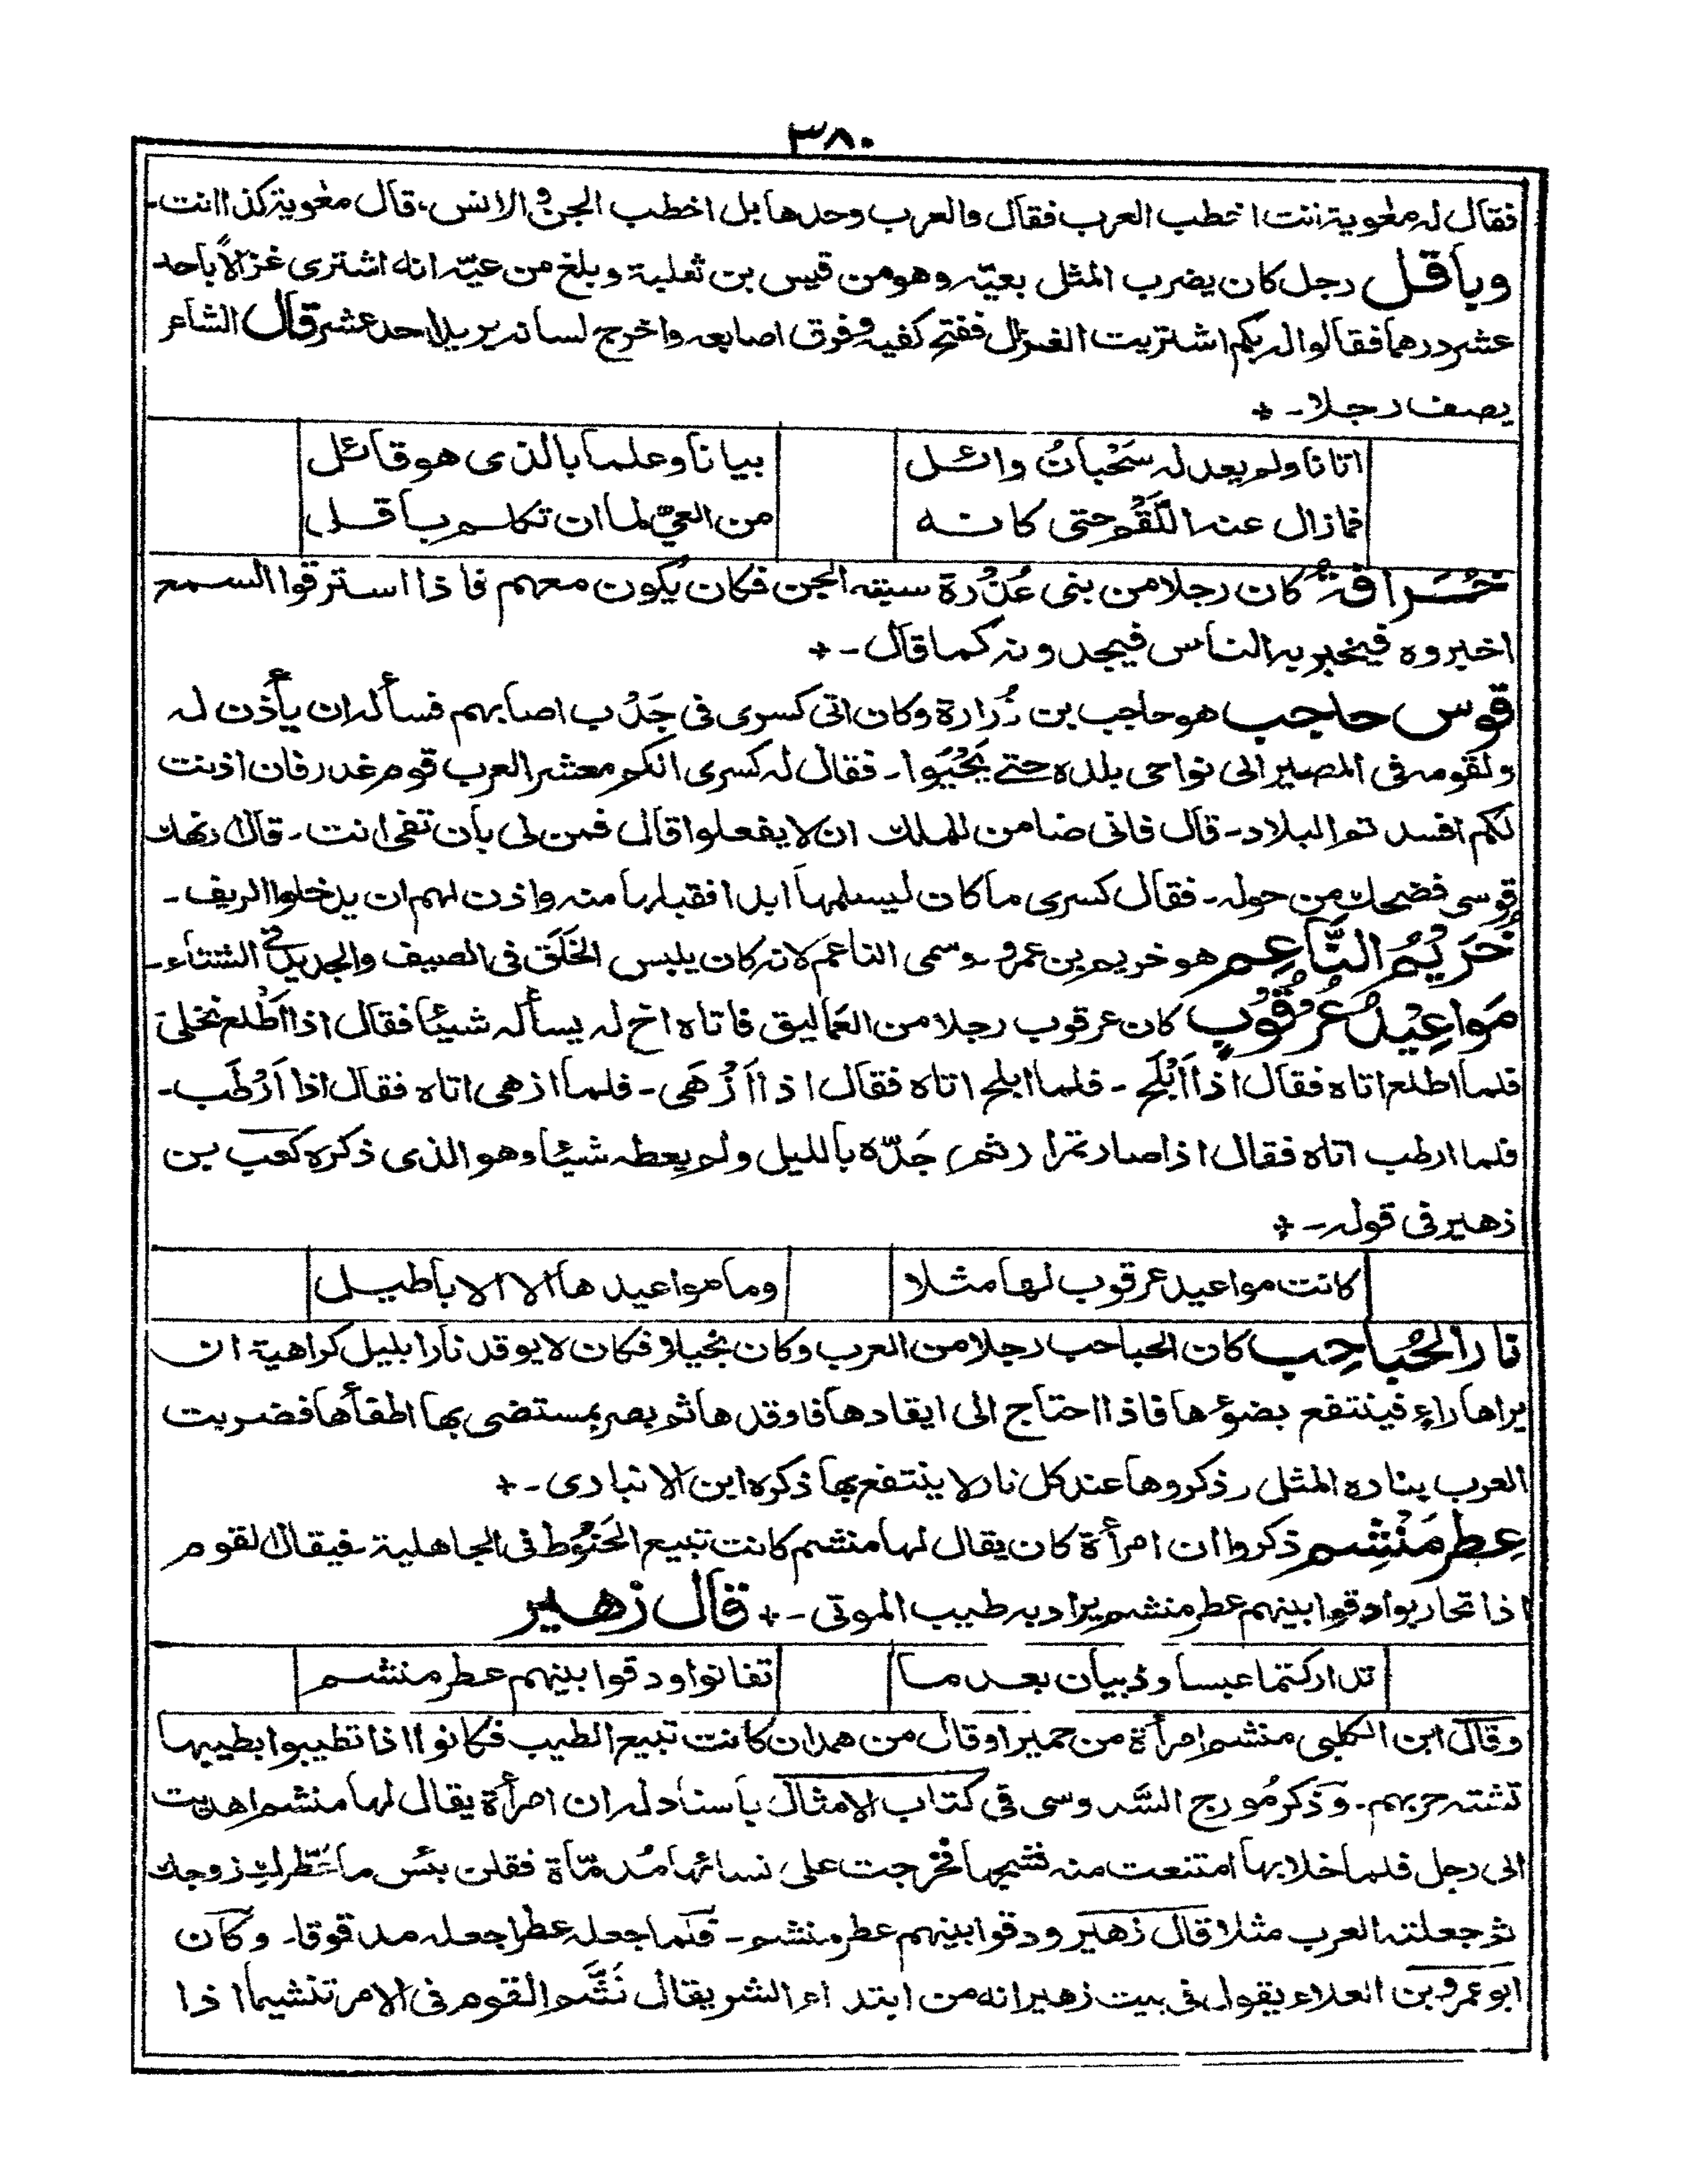 ٣٨٠
فقال له معٰوية انت اخطب العرب فقال والعرب وحدها بل اخطب الجن والانس، قال معٰوية كذا انت-
وباقل رجل كان يضرب المثل بعيّه وهو من قيس بن ثعلبة وبلغ من عيّه انه اشترى غزالاً باحد
عشر درهما فقالوا له بكم اشتريت الغزال ففتح كفيه وفرق اصابعه واخرج لسانه يريد احد عشر قال الشاعر
يصف رجلا- +
اتانا ولم يعدله سَحْبانُ وائل بيانا وعلما بالذى هو قائل
فمازال عنه اللَّقْم حتى كانه من العيّ لما ان تكلم باقل
خُرَافةُ كان رجلا من بنى عُذْرة سبقه الجن فكان يكون معهم فاذا استرقوا السمع
اخبروه فيخبر به الناس فيجدونه كما قال- +
قوس حاجب هو حاجب بن زُرارة وكان اتى كسرى فى جَدْب اصابهم فسأله ان يأذن له
ولقومه فى المصير الى نواحى بلده حتے يَحْيَوا- فقال له كسرى انكم معشر العرب قوم غدر فان اذنت
لكم افسدتم البلاد- قال فانى ضامن للملك ان لا يفعلوا قال فمن لى بان تفى انت- قال ارهنك
قوسى فضحك من حوله- فقال كسرى ما كان ليسلمها ابدا فقبلها منه واذن لهم ان يدخلوا الريف-
خُرَيْمُ النَّاعِم هو خريم بن عمرو- وسمى الناعم لانه كان يلبس الخَلَق فى الصيف والجديد فى الشتاء-
مَواعِيْدُ عُرْقُوبٍ كان عرقوب رجلا من العماليق فاتاه اخ له يسأله شيئا فقال اذا اَطْلع نخلى
فلما اطلع اتاه فقال اذا اَبْلَح- فلما ابلح اتاه فقال اذا اَزْهَى- فلما ازهى اتاه فقال اذا اَرْطَب-
فلما ارطب اتاه فقال اذا صار تمرا (ثم) جَدّه بالليل ولم يعطه شيئا وهو الذى ذكره كعب بن
زهير فى قوله- +
كانت مواعيد عرقوب لها مثلا وما مواعيدها الا الاباطيل
نار الحُباحِب كان الحباحب رجلا من العرب وكان بخيلا فكان لا يوقد نارا بليل كراهية ان
يراها راءٍ فينتفع بضوءها فاذا احتاج الى ايقادها فاوقدها ثم بصر بمستضى بها اطفأها فضربت
العرب بناره المثل وذكروها عند كل نار لا ينتفع بها ذكره ابن الانبارى- +
عِطر مَنْشِم ذكروا ان امرأة كان يقال لها منشم كانت تبيع الحَنُوط فى الجاهلية- فيقال لقوم
اذا تحاربوا دقوا بينهم عطر منشم يراد به طيب الموتى- + قال زهير
تداركتما عبسا وذبيان بعد ما تفانوا ودقوا بينهم عطر منشم
وقال ابن الكلبى منشم امرأة من حمير او قال من همدان كانت تبيع الطيب فكانوا اذا تطيبوا بطيبها
تشتد حربهم- وذكر مُورج السَّدوسى فى كتاب الامثال باسناد له ان امرأة يقال لها منشم اهديت
الى رجل فلما خلابها امتنعت منه فشجها فخرجت على نسائها مُدمّاة فقلن بئس ما عَطّرلكِ زوجك
ثم جعلته العرب مثلا قال زهير ودقوا بينهم عطر منشم- فلما جعله عطرا جعله مدقوقا- وكان
ابو عمرو بن العلاء يقول فى بيت زهير انه من ابتداء الشر يقال نَشَّم القوم فى الامر تنشيما اذا